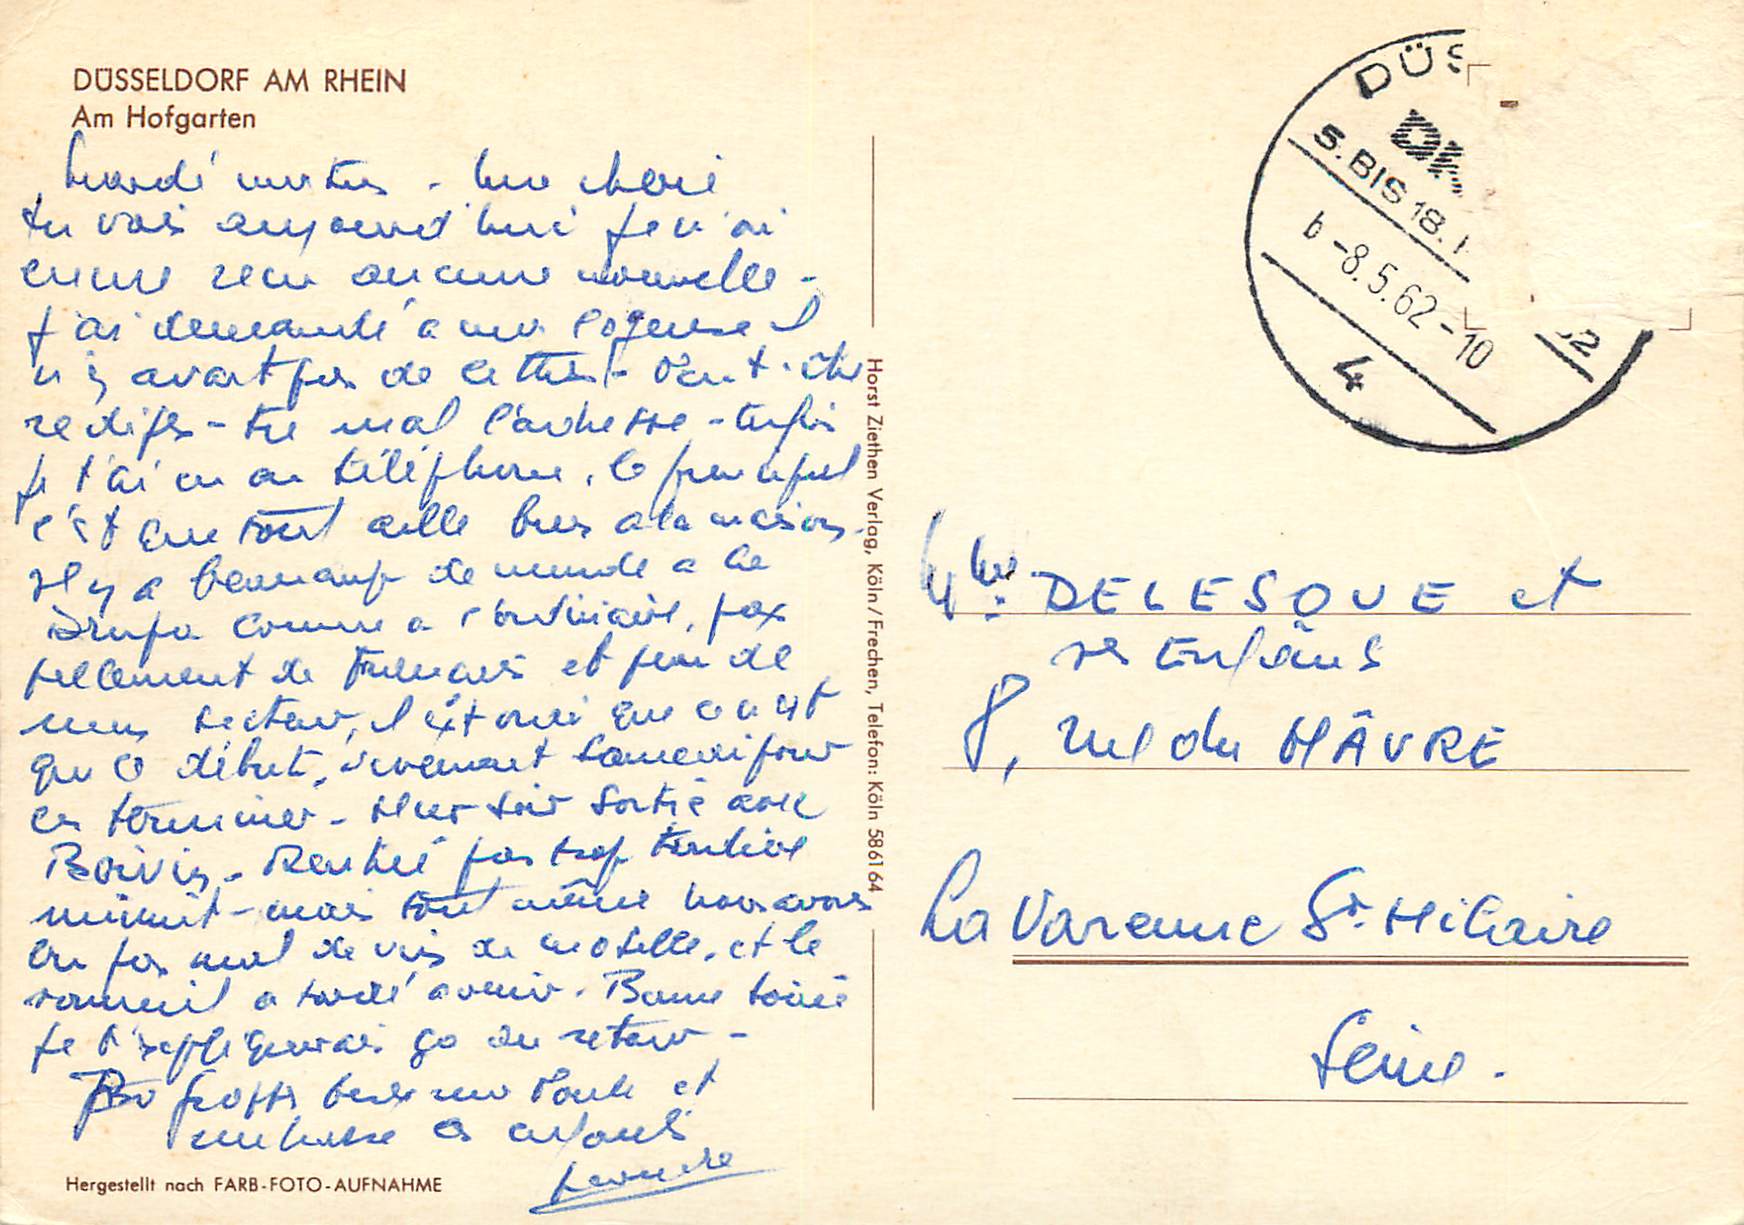 DÜSSELDORF AM RHEIN
Am Hofgarten
mardi matin - ma cherie
tu vois aujourd'hui je n'ai
encore recu aucune nouvelle -
j'ai demandé a ma logeuse il
n'y avait pas de lettres - Peut-être
rediges-tu mal l'adresse - enfin
je t'ai eu au téléphone, le principal
c'est que tout aille bien a la maison.
Il y a beaucoup de monde a la
Drupa comme a l'ordinaire, pas
tellement de Francais et peu de
mon secteur, il est vrai que ce n'est
que le début, vivement samedi pour
en terminer - Hier soir sortie avec
Boivin - Rentré pas trop tard
minuit - mais tout même nous avons
bu pas mal de vin de moselle, et le
sommeil a tardé a venir. Bonne soirée
je t'expliquerai ça au retour -
gross baiser ma et
embrasse les enfants
DÜS
5. BIS 18.
b -8.5.62-10
4
Mme DELESQUE et
ses Enfants
8, rue du HÂVRE
La Varenne St. Hilaire
Seine.
Horst Ziethen Verlag, Köln/Frechen, Telefon: Köln 586164
Hergestellt nach FARB-FOTO-AUFNAHME